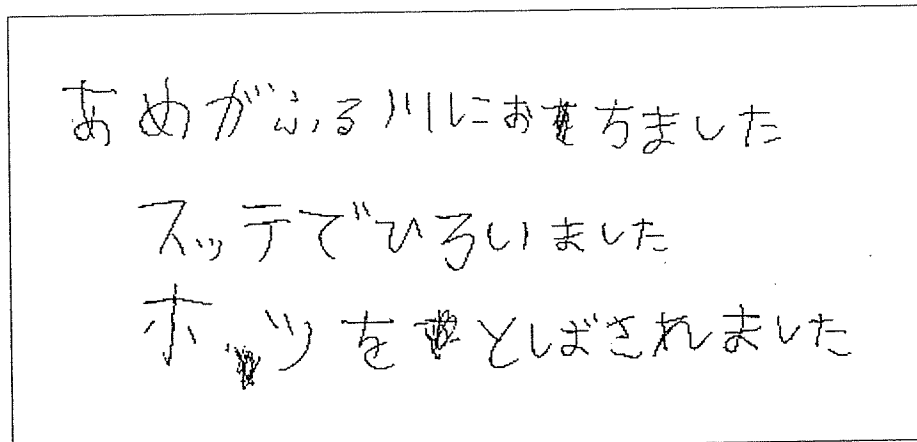 あめがふる川におちました
スッテでひろいました
ホッツをとしばされました